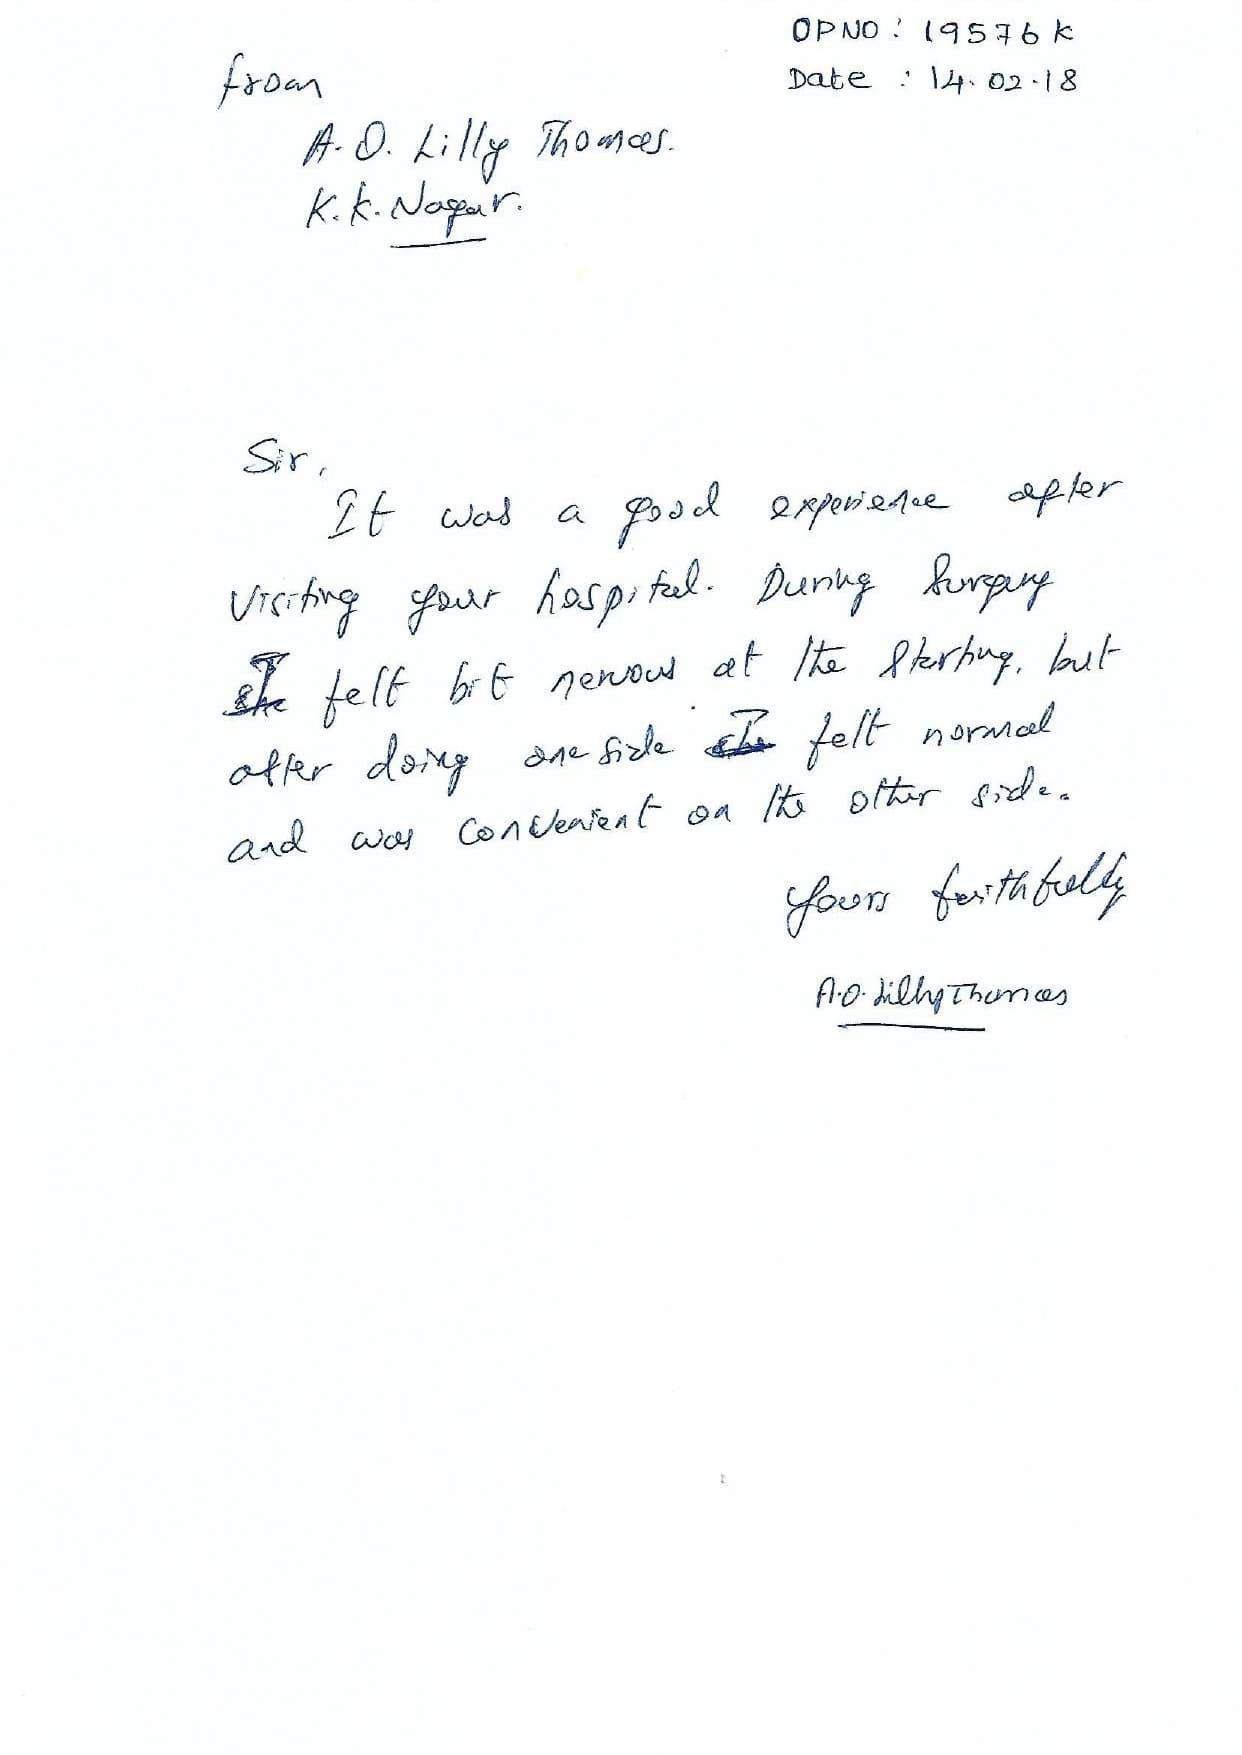 OPNO: 19576K
Date : 14.02.18
from
A.O. Lilly Thomas.
K.K. Nagar.
Sir,
It was a good experience after
visiting your hospital. During Surgery
I felt bit nervous at the starting, but
after doing one side I felt normal
and was convenient on the other side.
Yours faithfully
A.O. Lilly Thomas